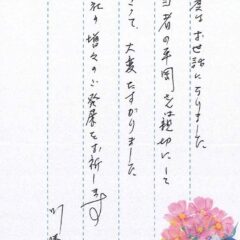 度はお世話になりました。
当者の平岡さんは親切にして
さって、大変たすかりました。
社の増々のご発展をお祈します
川